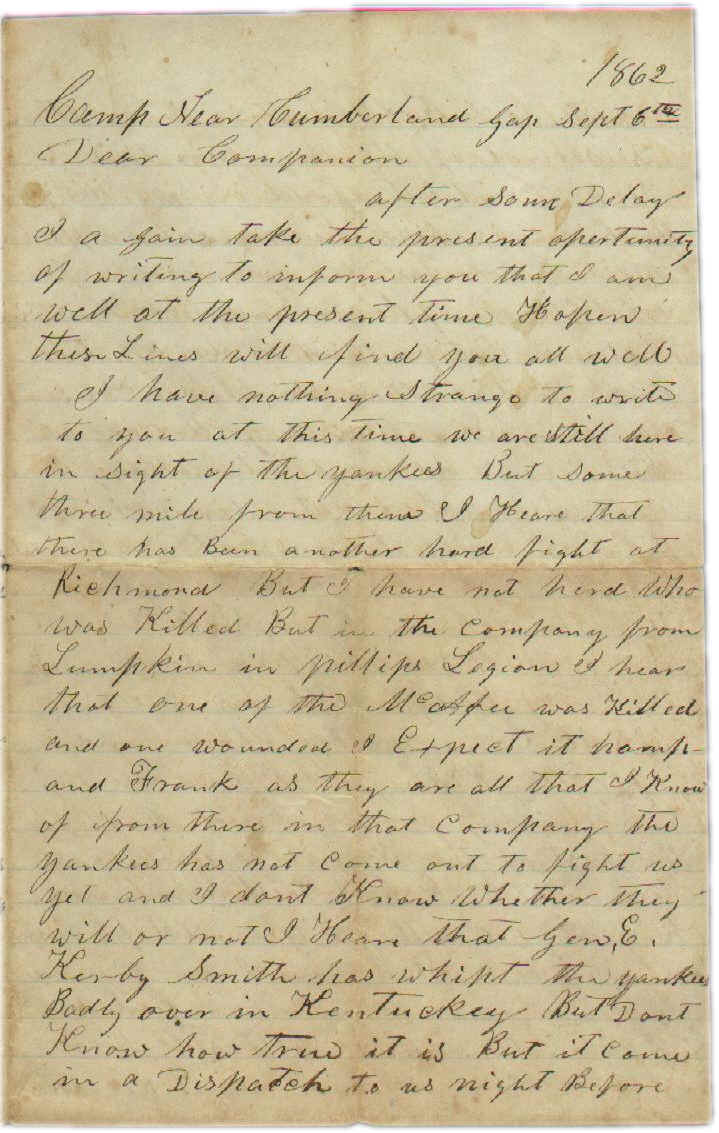 1862
Camp Near Cumberland Gap Sept 6th
Dear Companion
after some Delay
I a gain take the present opertunity
of writing to inform you that I am
well at the present time Hopen
these Lines will find you all well
I have nothing Strange to write
to you at this time we are still here
in sight of the yankees But some
three mile from them I Heare that
there has Been another hard fight at
Richmond But I have not herd Who
was Killed But in the company from
Lumpkin in pillips Legion I hear
that one of the McAfee was Killed
and one wounded I Expect it hamp-
and Frank as they are all that I Know
of from there in that Company the
yankees has not come out to fight us
yet and I dont Know Whether they
will or not I Heare that Gen. E.
Kerby Smith has whipt the yankees
Badly over in Kentuckey But Dont
Know how true it is But it come
in a Dispatch to us night Before